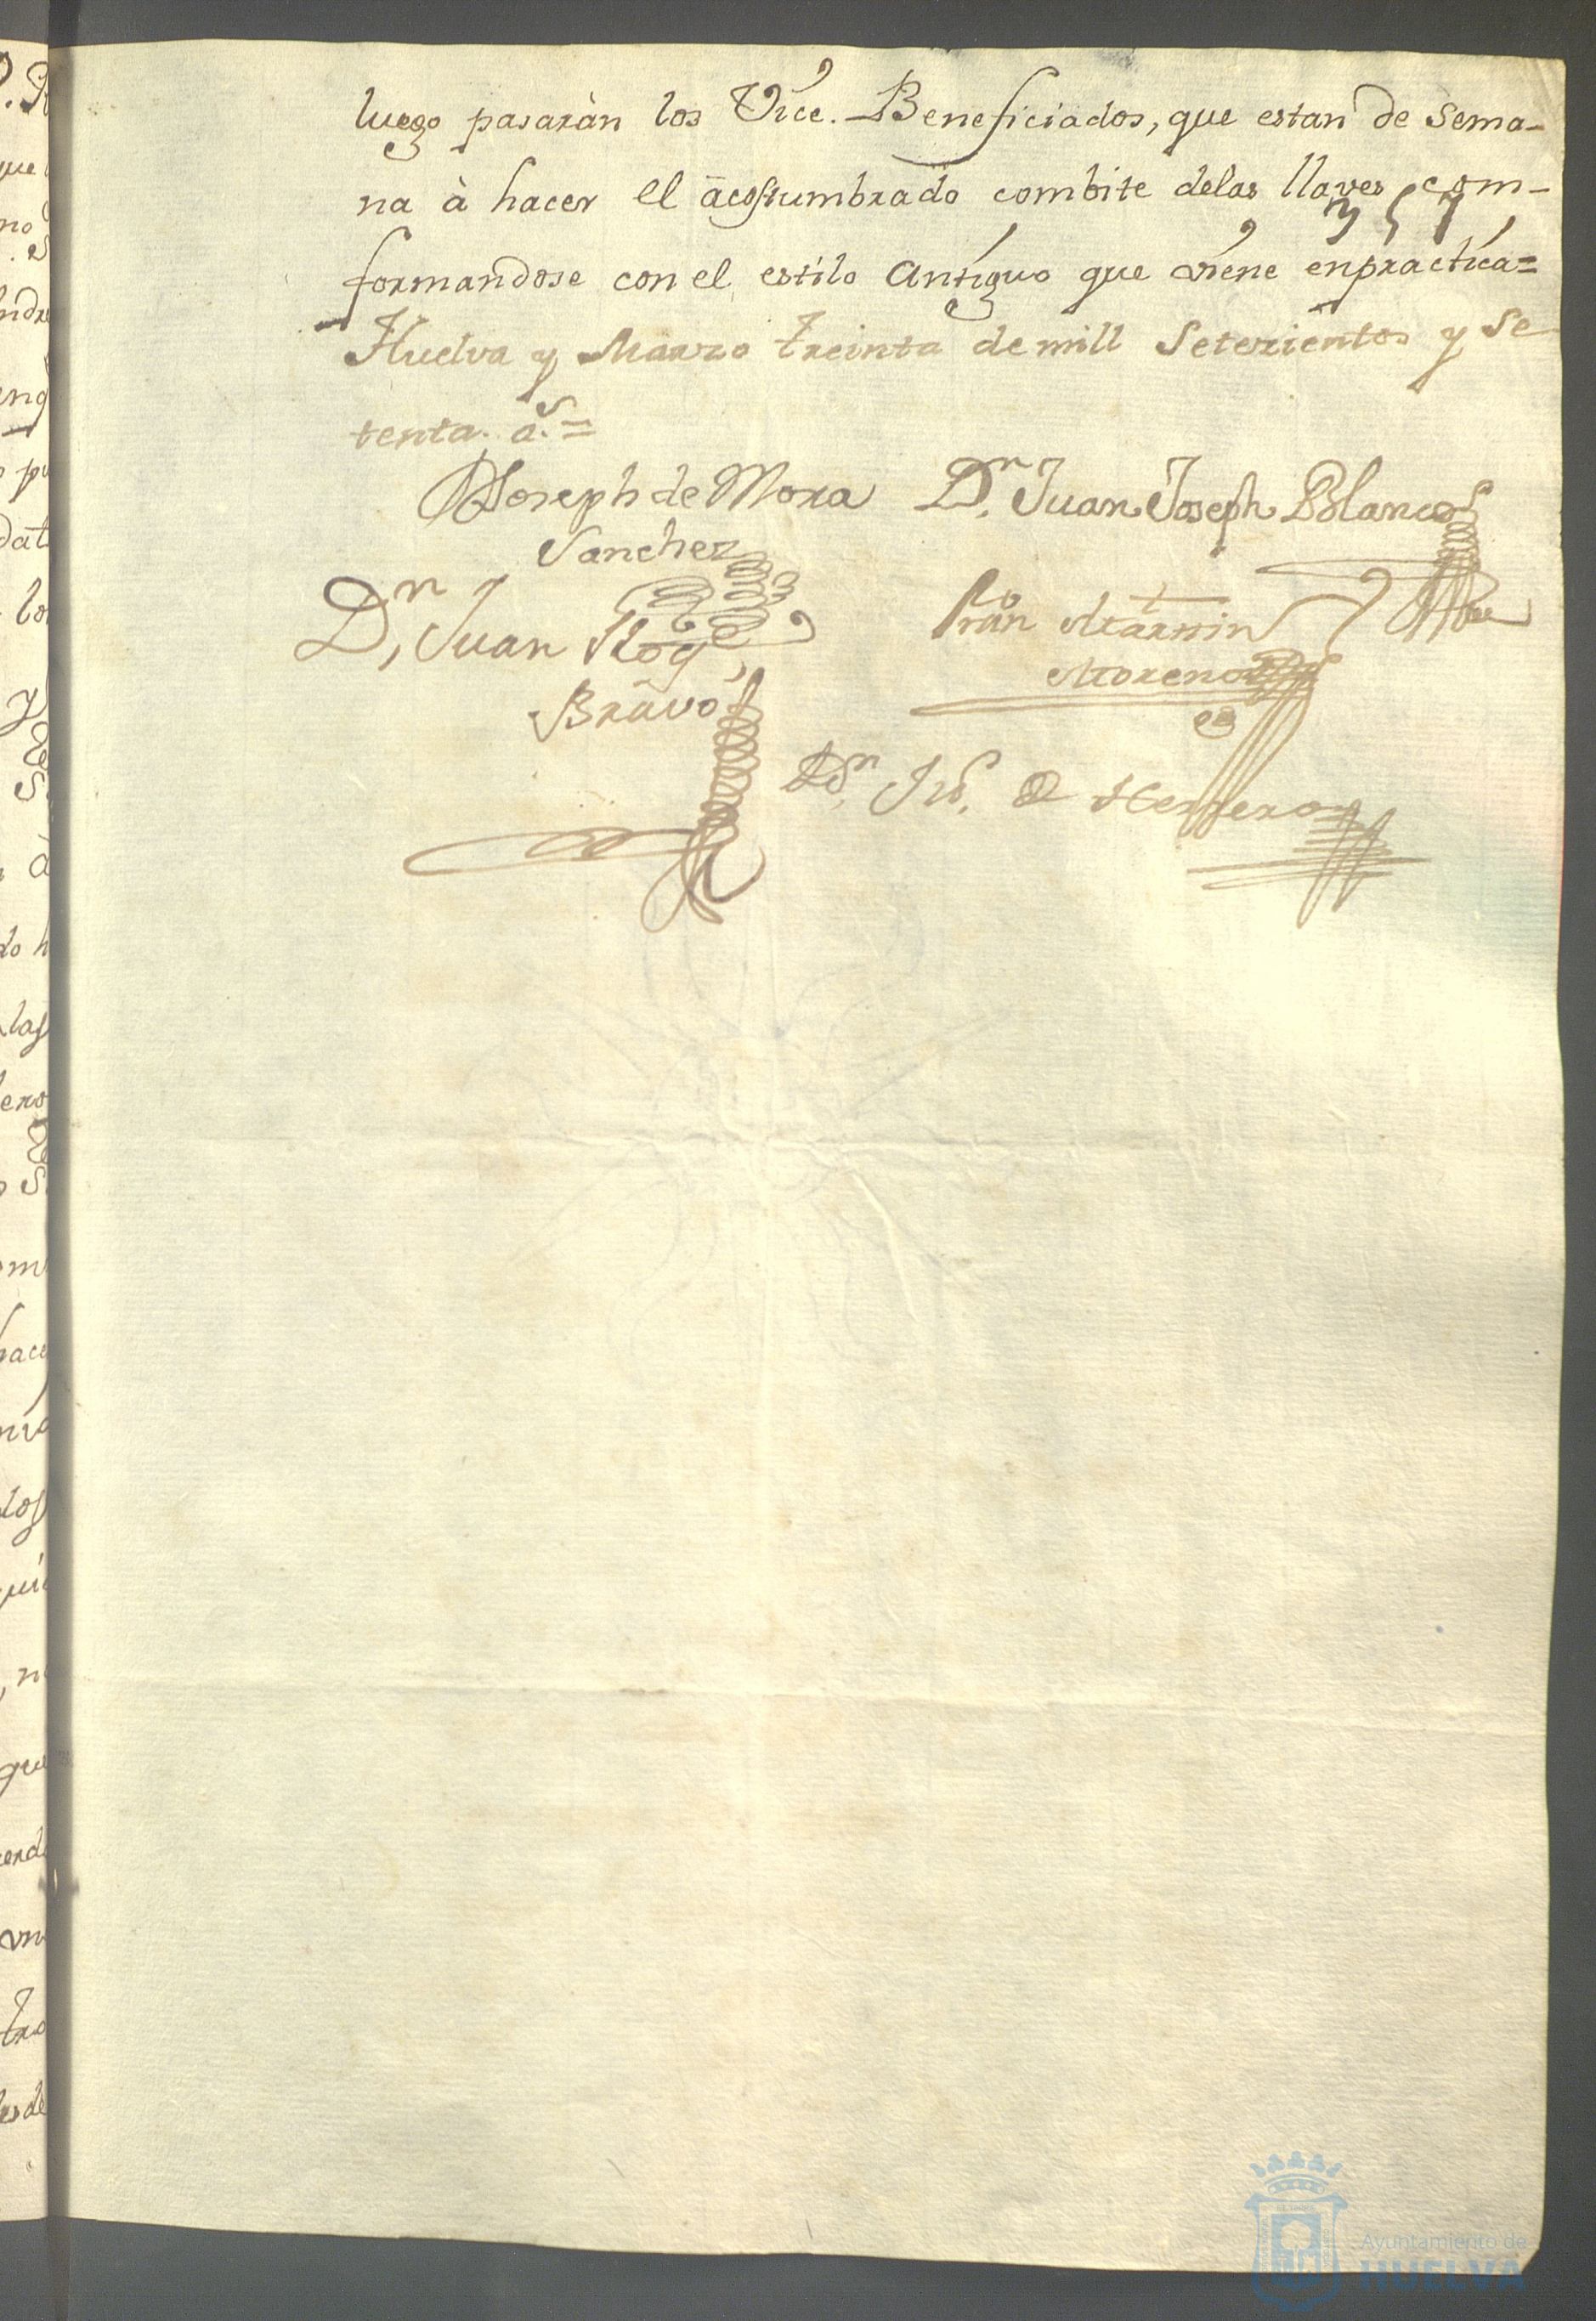 luego pasaràn los Vice. Beneficiados, que estan de sema-
na à hacer el acostumbrado combite delas llaves com-
357
formandose con el estilo Antiguo que viene enpractica=
Huelva y Marzo treinta de mill Setezientos y se
tenta. a.s=
Joseph de Mora
Sanchez
Dn. Juan Joseph Blanco
Dn. Juan Roq
Bravo
Fran Martin
Moreno
Dn. Ju. Herrero
Ayuntamiento de
HUELVA